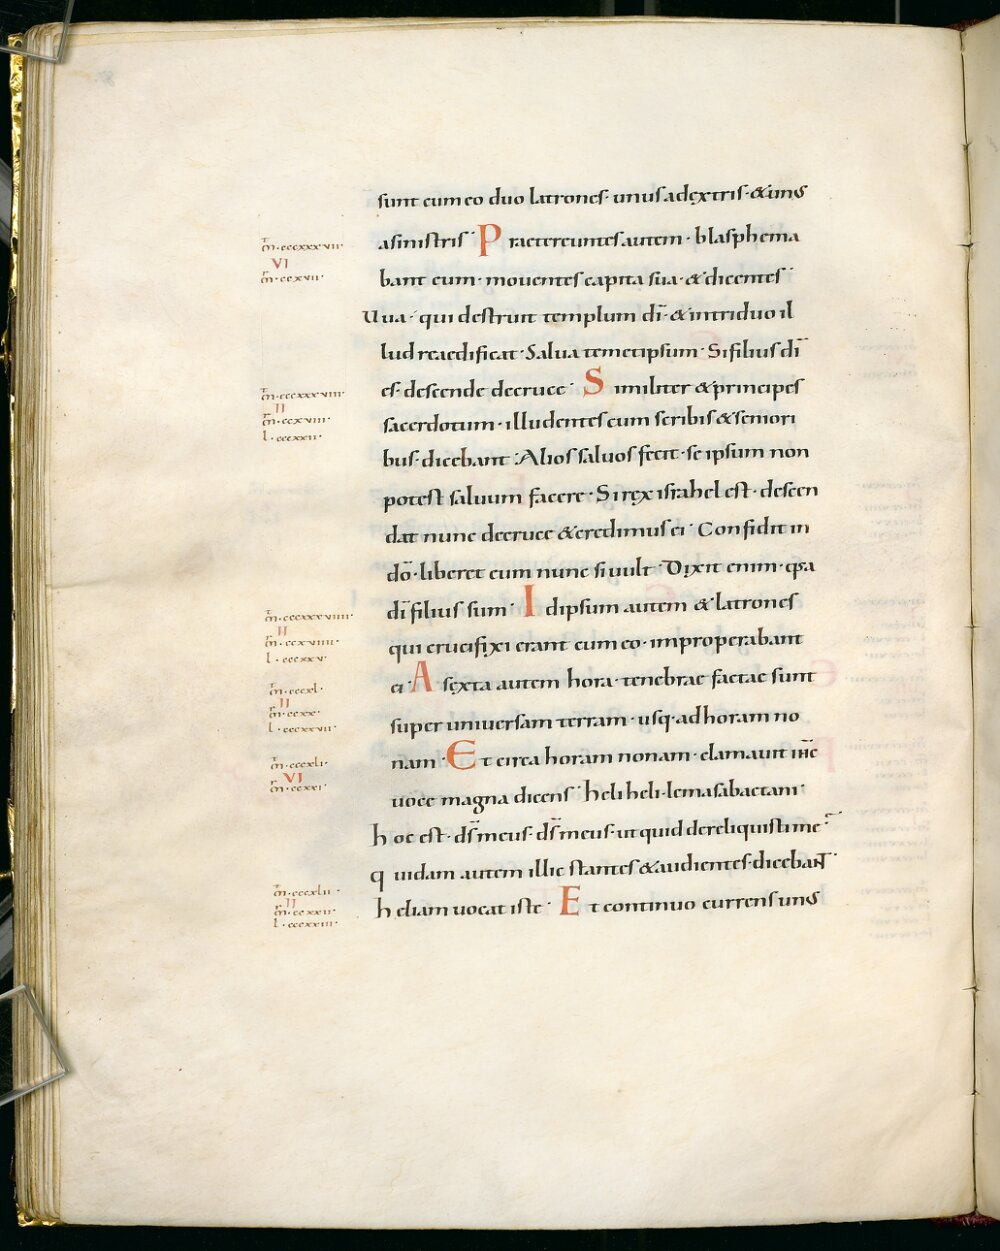 sunt cum eo duo latrones· unus adextris· & unus
asinistris· Praetereuntes autem· blasphema
bant eum· mouentes capita sua· & dicentes·
Uua· qui destruit templum dī· & intriduo il
lud reaedificat· Salua temetipsum· Si filius dī
es· descende decruce· Similiter & principes
sacerdotum· illudentes cum scribis & seniori
bus· dicebant· Alios saluos fecit· se ipsum non
potest saluum facere· Si rex israhel est· descen
dat nunc decruce & credimus ei· Confidit in
dō· liberet eum nunc si uult· Dixit enim· q̄a
dī filius sum· Idipsum autem & latrones
qui crucifixi erant cum eo· improperabant
ei· A sexta autem hora· tenebrae factae sunt
super uniuersam terram· usq· ad horam no
nam· Et circa horam nonam· clamauit ihc̄
uoce magna dicens· heli heli· lemasabactani·
hoc est· ds̄ meus· ds̄ meus· ut quid dereliquisti me·
quidam autem illic stantes & audientes· dicebant·
heliam uocat iste· Et continuo currens unus
m̄·cccxxxvii·
VI
m̄·ccxvii·
m̄·cccxxxviii·
II
m̄·ccxviii·
l·cccxxii·
m̄·cccxxxviiii·
II
m̄·ccxviiii·
l·cccxxv·
m̄·cccxl·
II
m̄·ccxx·
l·cccxxvii·
m̄·cccxli·
VI
m̄·ccxxi·
m̄·cccxlii·
II
m̄·ccxxii·
l·cccxxiii·